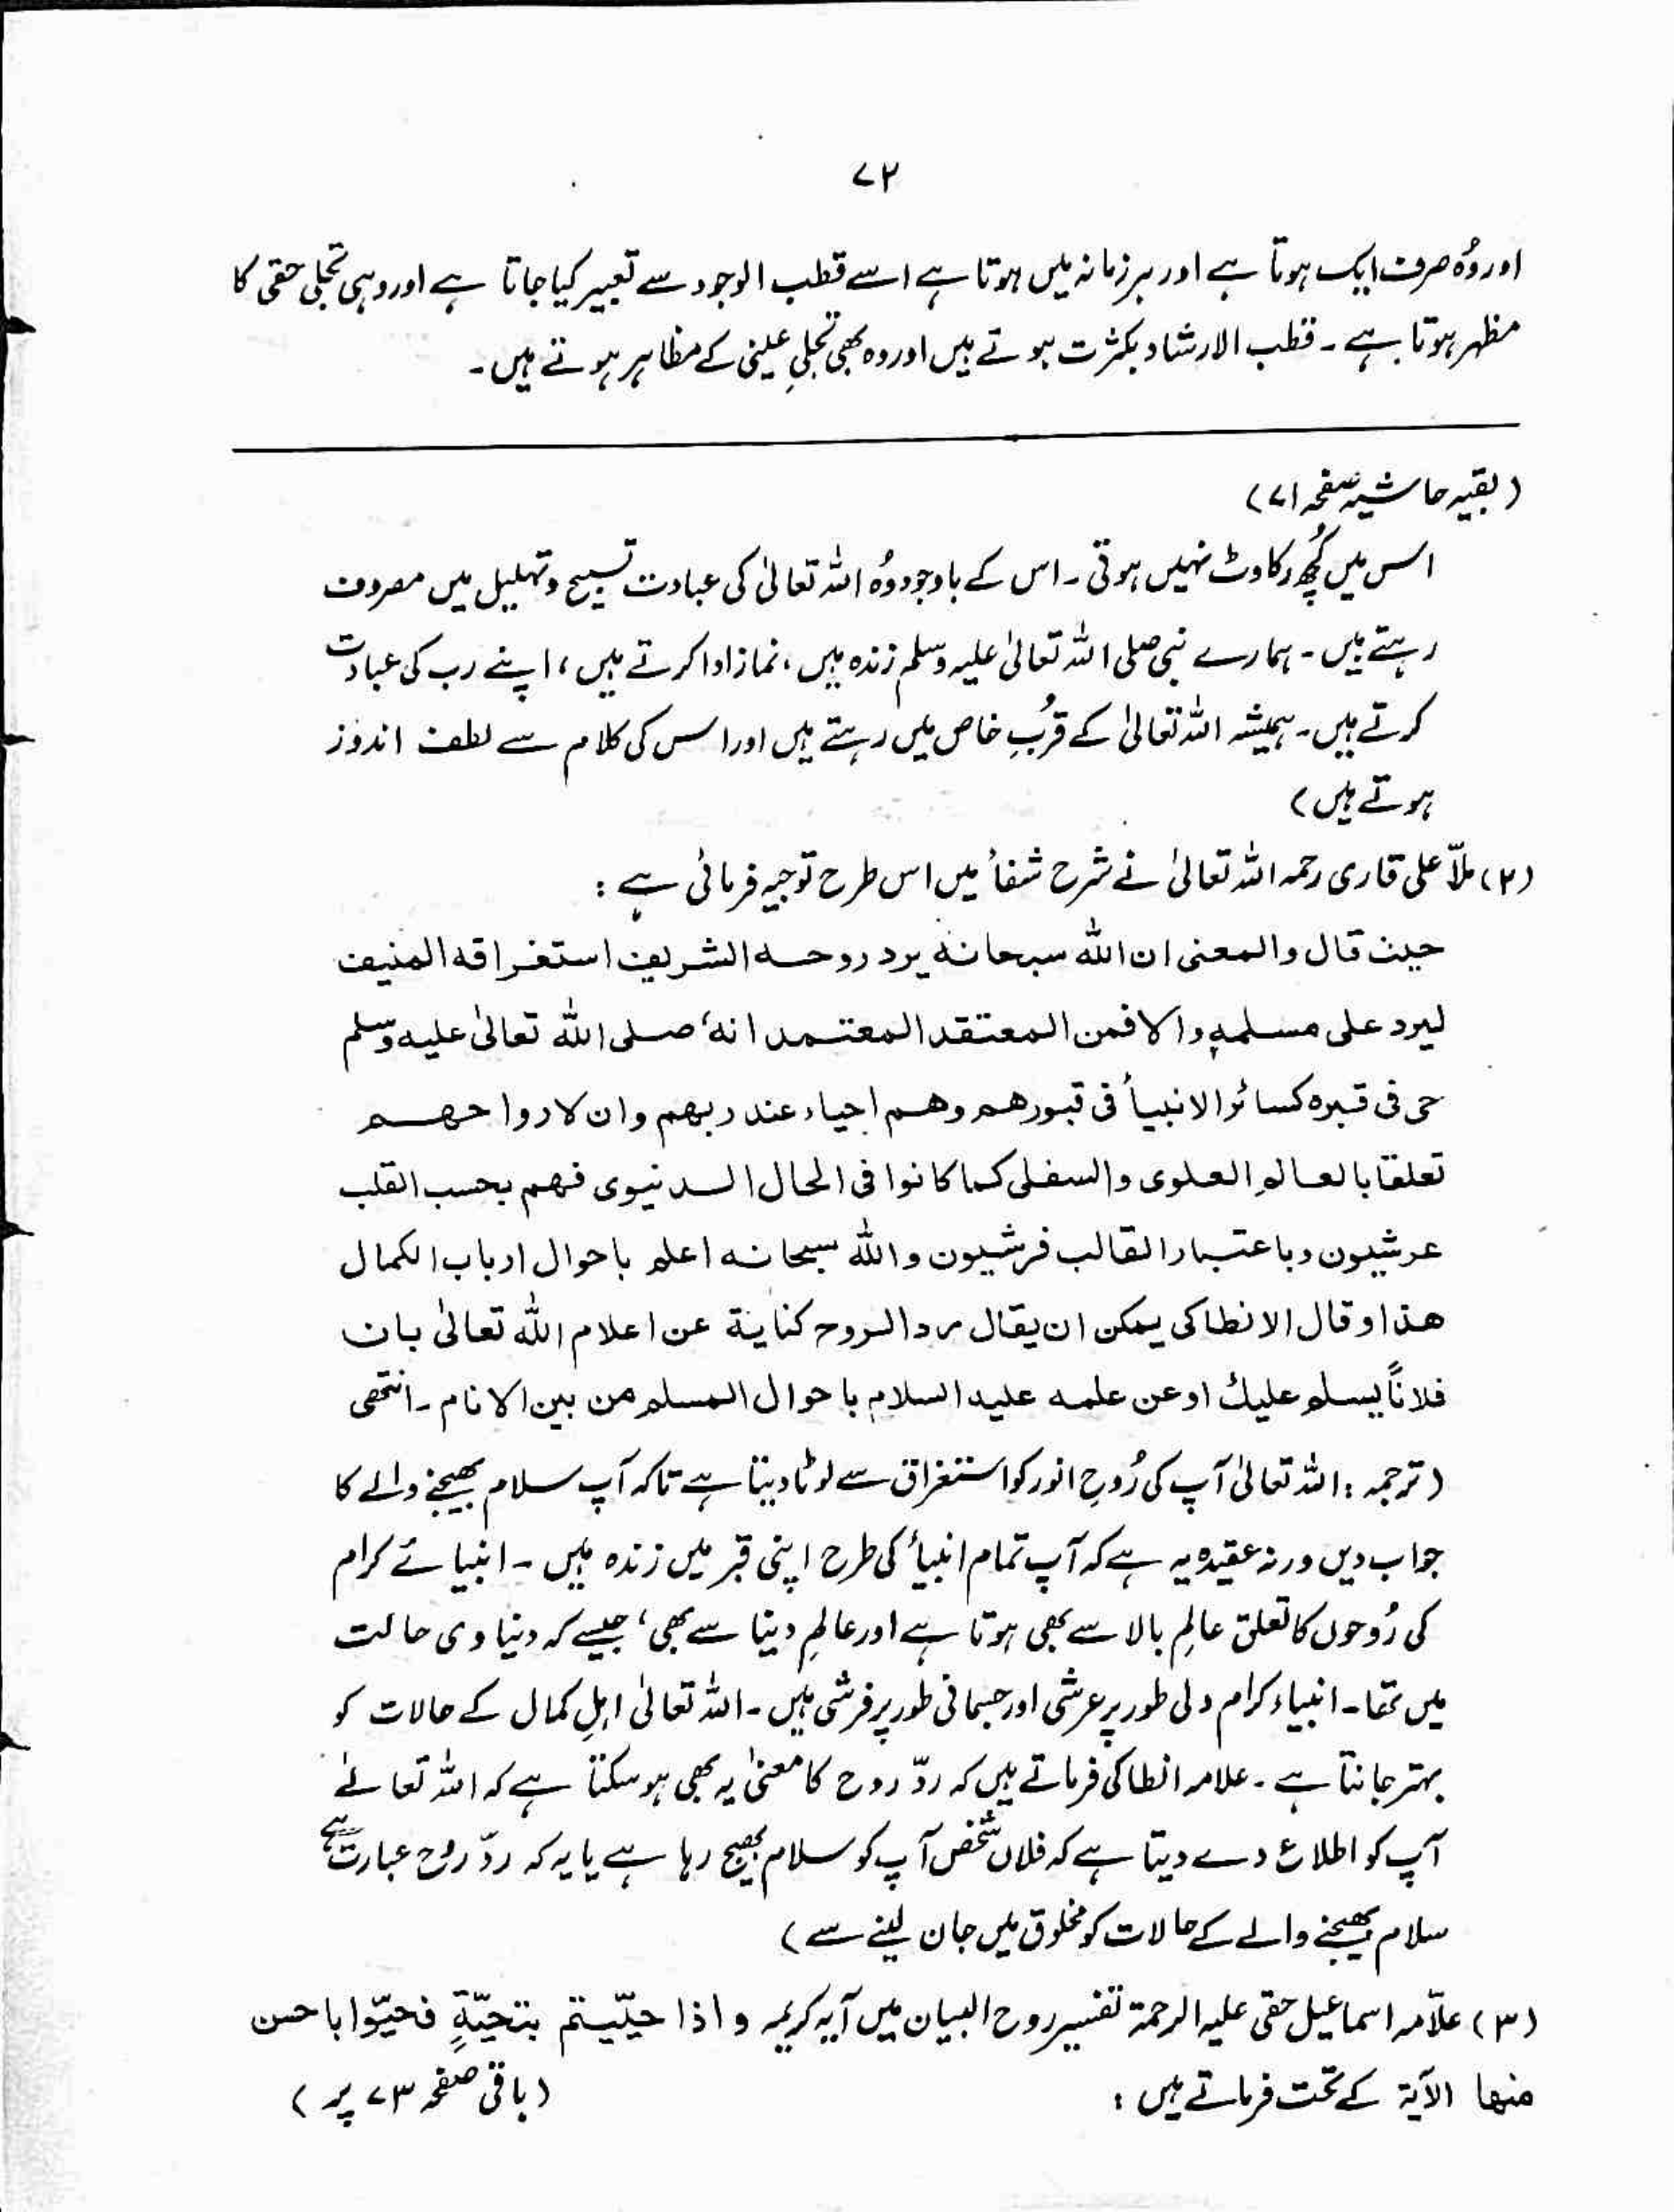 ۷۲
اور وُہ صرف ایک ہوتا ہے اور ہر زمانہ میں ہوتا ہے اسے قطب الوجود سے تعبیر کیا جاتا ہے اور وہی تجلی حقی کا
مظہر ہوتا ہے ۔ قطب الارشاد بکثرت ہوتے ہیں اور وہ بھی تجلیِ عینی کے مظاہر ہوتے ہیں ۔
(بقیہ حاشیہ صفحہ ۷۱)
اس میں کُچھ رکاوٹ نہیں ہوتی ۔ اس کے باوجود وُہ اللہ تعالیٰ کی عبادت تسبیح و تہلیل میں مصروف
رہتے ہیں ۔ ہمارے نبی صلی اللہ تعالیٰ علیہ وسلم زندہ ہیں ، نماز ادا کرتے ہیں ، اپنے رب کی عبادت
کرتے ہیں ۔ ہمیشہ اللہ تعالیٰ کے قُربِ خاص میں رہتے ہیں اور اس کی کلام سے لطف اندوز
ہوتے ہیں )
(۲) ملّا علی قاری رحمہ اللہ تعالیٰ نے شرح شفاء میں اس طرح توجیہ فرمائی ہے :
حیث قال والمعنی ان اللہ سبحانہ یرد روحہ الشریف استغراقہ المنیف
لیرد علی مسلمہ والا فمن المعتقد المعتمد انہ، صلی اللہ تعالیٰ علیہ وسلم
حی فی قبرہ کسائر الانبیاء فی قبورھم وھم احیاء عند ربھم وان لارواحھم
تعلقا بالعالم العلوی والسفلی کما کانوا فی الحال الدنیوی فھم بحسب القلب
عرشیون و باعتبار القالب فرشیون واللہ سبحانہ اعلم باحوال ارباب الکمال
ھذا و قال الانطاکی یمکن ان یقال رد الروح کنایۃ عن اعلام اللہ تعالیٰ بان
فلاناً یسلم علیك او عن علمہ علیہ السلام باحوال المسلم من بین الانام ۔ انتھی
(ترجمہ : اللہ تعالیٰ آپ کی رُوحِ انور کو استغراق سے لوٹا دیتا ہے تاکہ آپ سلام بھیجنے والے کا
جواب دیں ورنہ عقیدہ یہ ہے کہ آپ تمام انبیاء کی طرح اپنی قبر میں زندہ ہیں ۔ انبیائے کرام
کی رُوحوں کا تعلق عالمِ بالا سے بھی ہوتا ہے اور عالمِ دنیا سے بھی ، جیسے کہ دنیاوی حالت
میں تھا ۔ انبیاء کرام دلی طور پر عرشی اور جسمانی طور پر فرشی ہیں ۔ اللہ تعالیٰ اہلِ کمال کے حالات کو
بہتر جانتا ہے ۔ علامہ انطاکی فرماتے ہیں کہ ردّ روح کا معنیٰ یہ بھی ہو سکتا ہے کہ اللہ تعالےٰ
آپ کو اطلاع دے دیتا ہے کہ فلاں شخص آپ کو سلام بھیج رہا ہے یا یہ کہ ردّ روح عبارت ہے
سلام بھیجنے والے کے حالات کو مخلوق میں جان لینے سے )
(۳) علّامہ اسماعیل حقی علیہ الرحمۃ تفسیر روح البیان میں آیہ کریمہ و اذا حیّیتم بتحیّۃٍ فحیّوا باحسن
منھا الآیۃ کے تحت فرماتے ہیں : (باقی صفحہ ۷۳ پر )